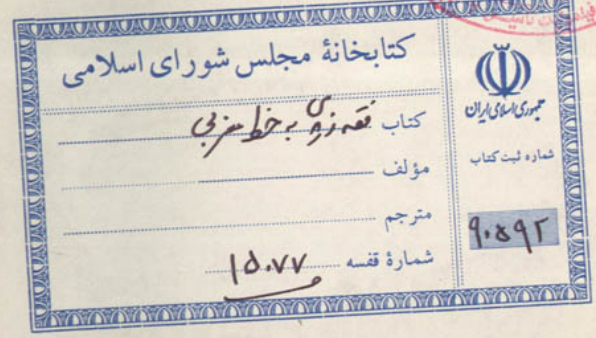 کتابخانهٔ مجلس شورای اسلامی
کتاب فقه زیدی به خط مغربی
مؤلف
مترجم
شمارهٔ قفسه ۱۵۰۷۷
جمهوری اسلامی ایران
شماره ثبت کتاب
۹۰۵۹۲